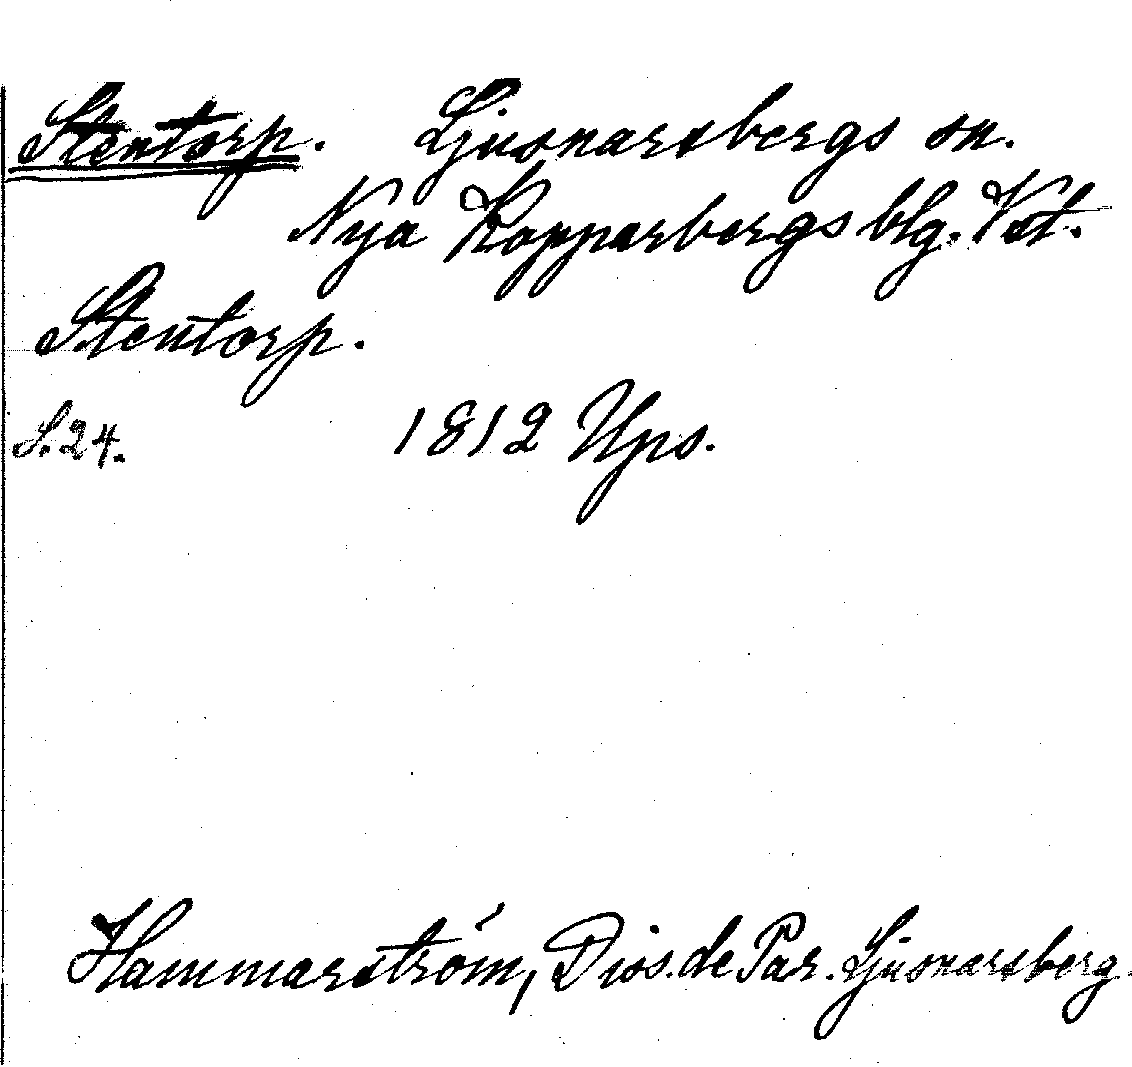 Stentorp. Ljusnarsbergs sn.
Nya Kopparbergs blg. Vst.
Stentorp.
S. 24. 1812 Ups.
Hammarström, Diss. de Par. Ljusnarsberg.